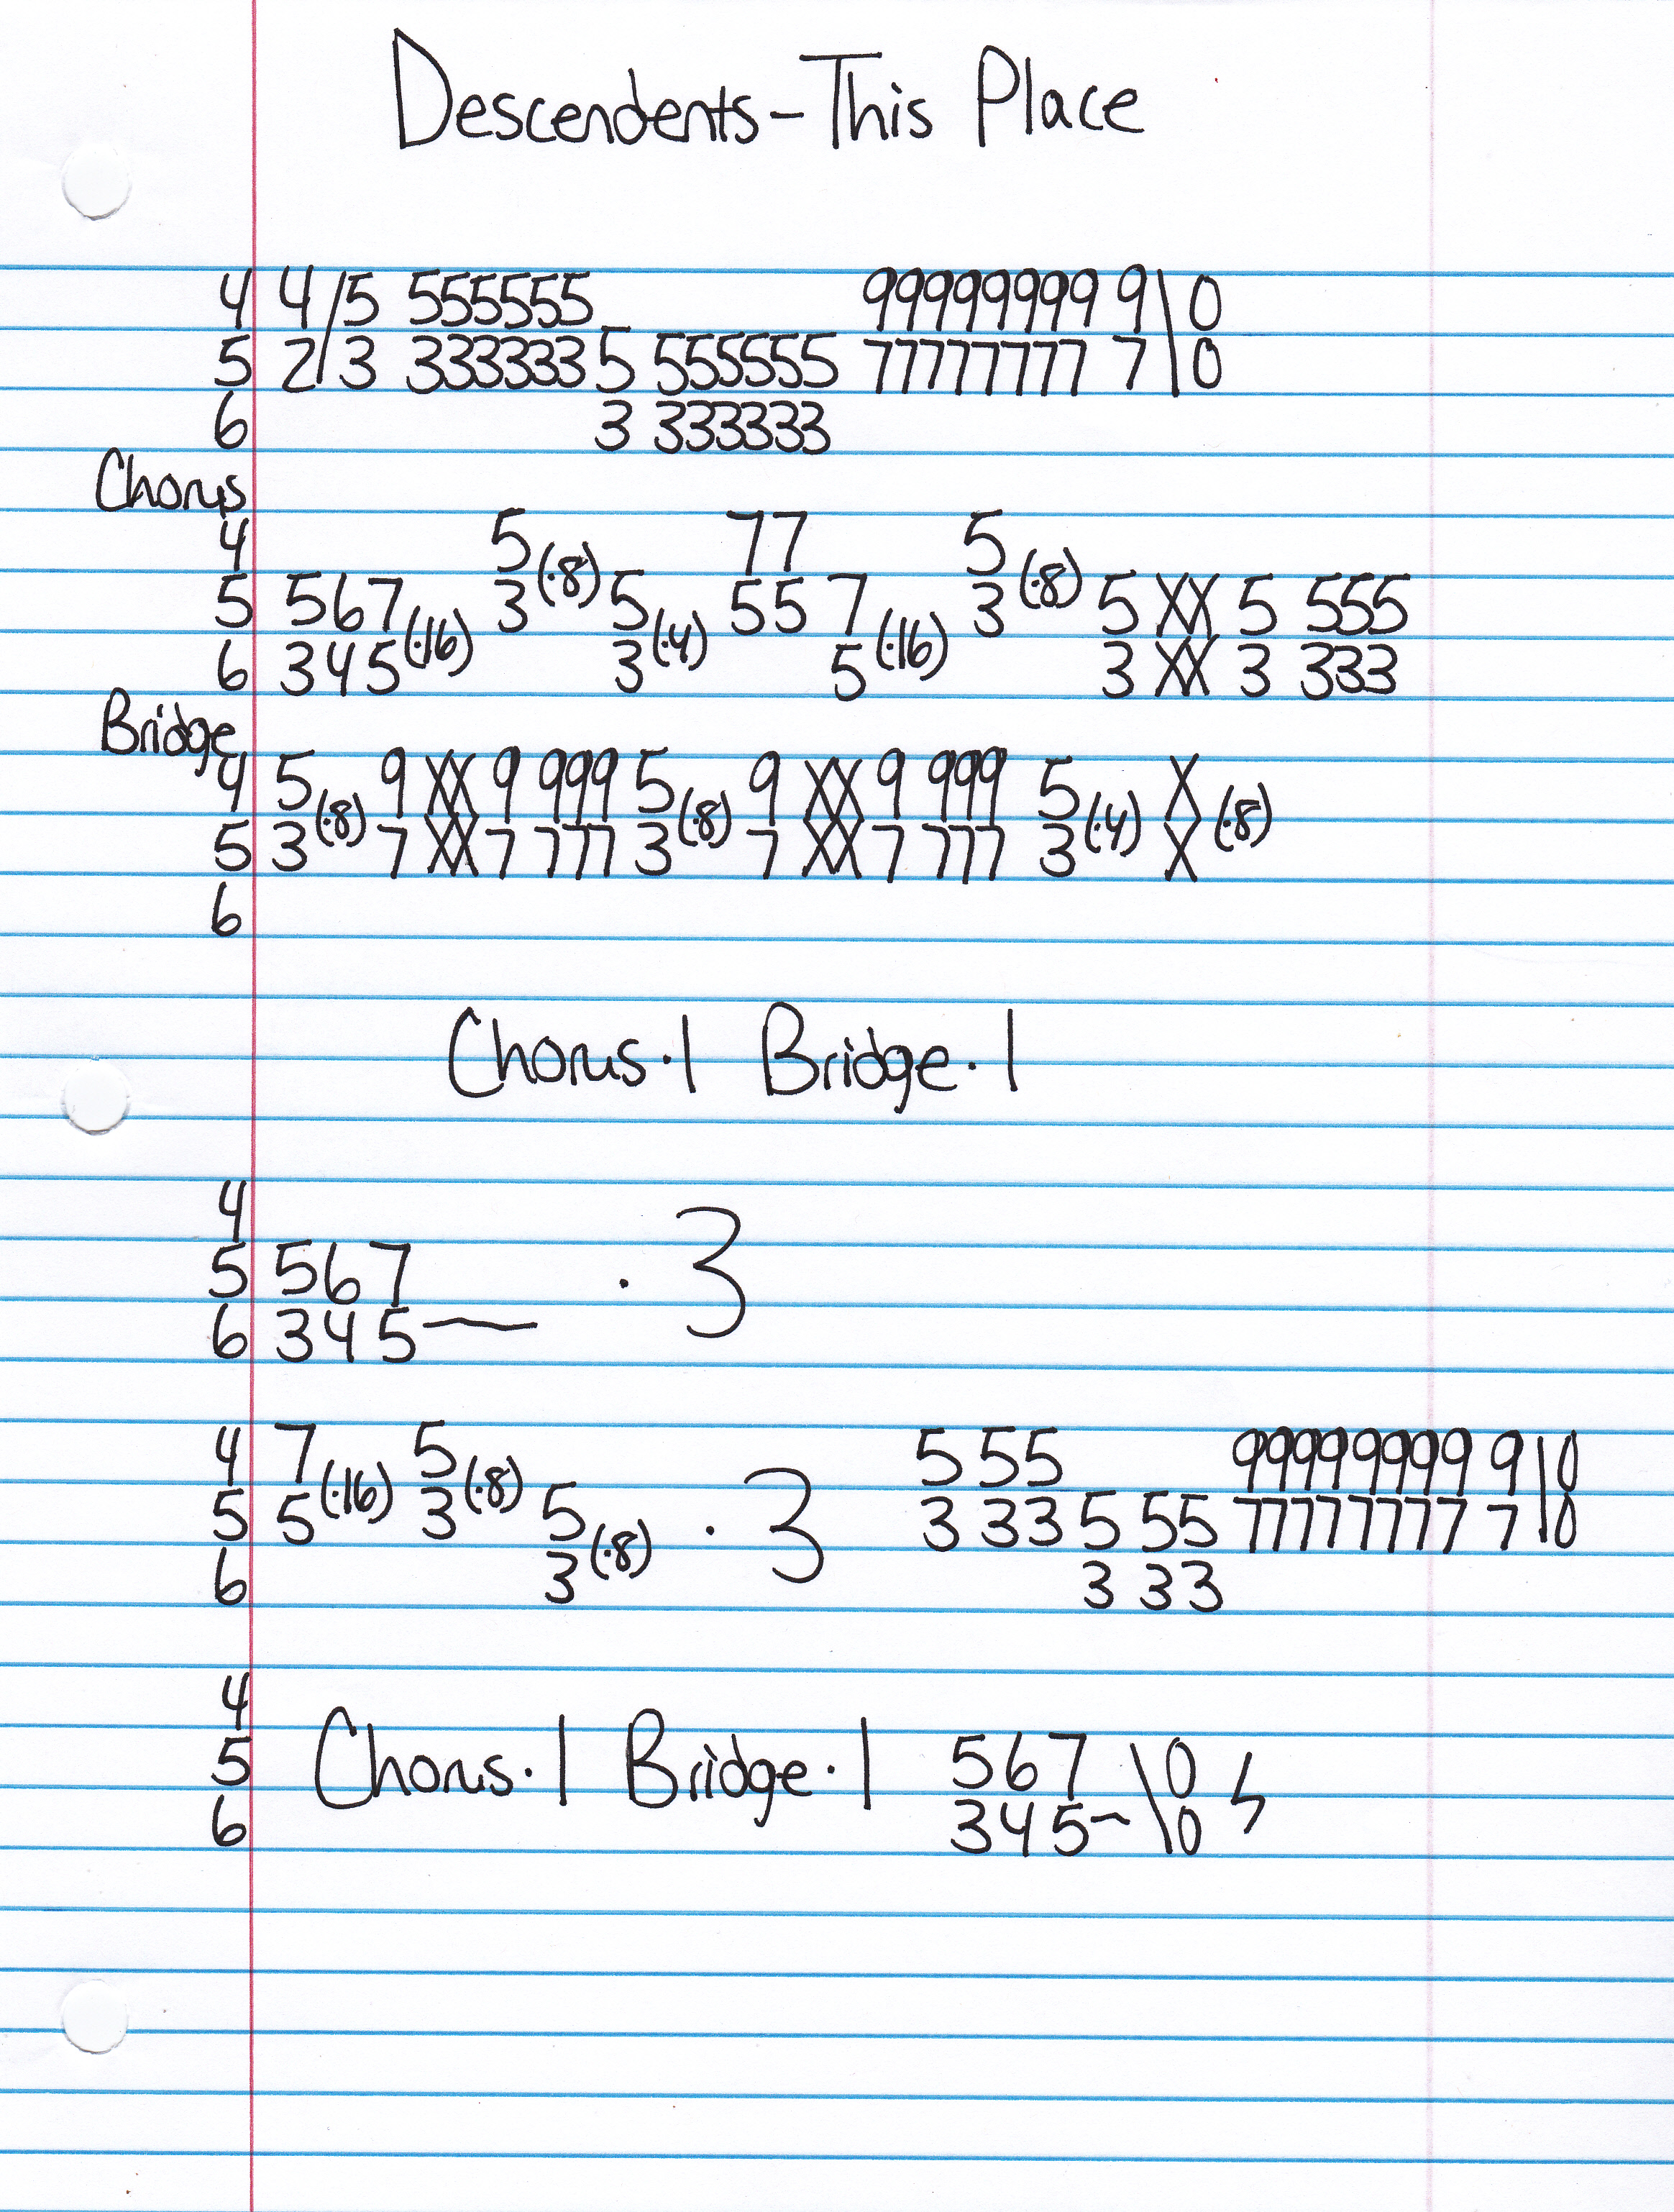 Descendents - This Place
4 4/5 555555 99999999 9\0
5 2/3 333333 5 555555 77777777 7\0
6 3 333333
Chorus
4 5 77 5
5 567 3 (·8) 5 55 7 3 (·8) 5 XX 5 555
6 345 (·16) 3 (·4) 5 (·16) 3 XX 3 333
Bridge
4 5 9 XX 9 999 5 9 XX 9 999 5 X
5 3 (·8) 7 XX 7 777 3 (·8) 7 XX 7 777 3 (·4) X (·8)
6
Chorus·1 Bridge·1
4
5 567 · 3
6 345~
4 7 5 5 55 99999999 9\0
5 5 (·16) 3 (·8) 5 · 3 3 33 5 55 77777777 7\0
6 3 (·8) 3 33
4
5 Chorus·1 Bridge·1 567 \0
6 345~ \0